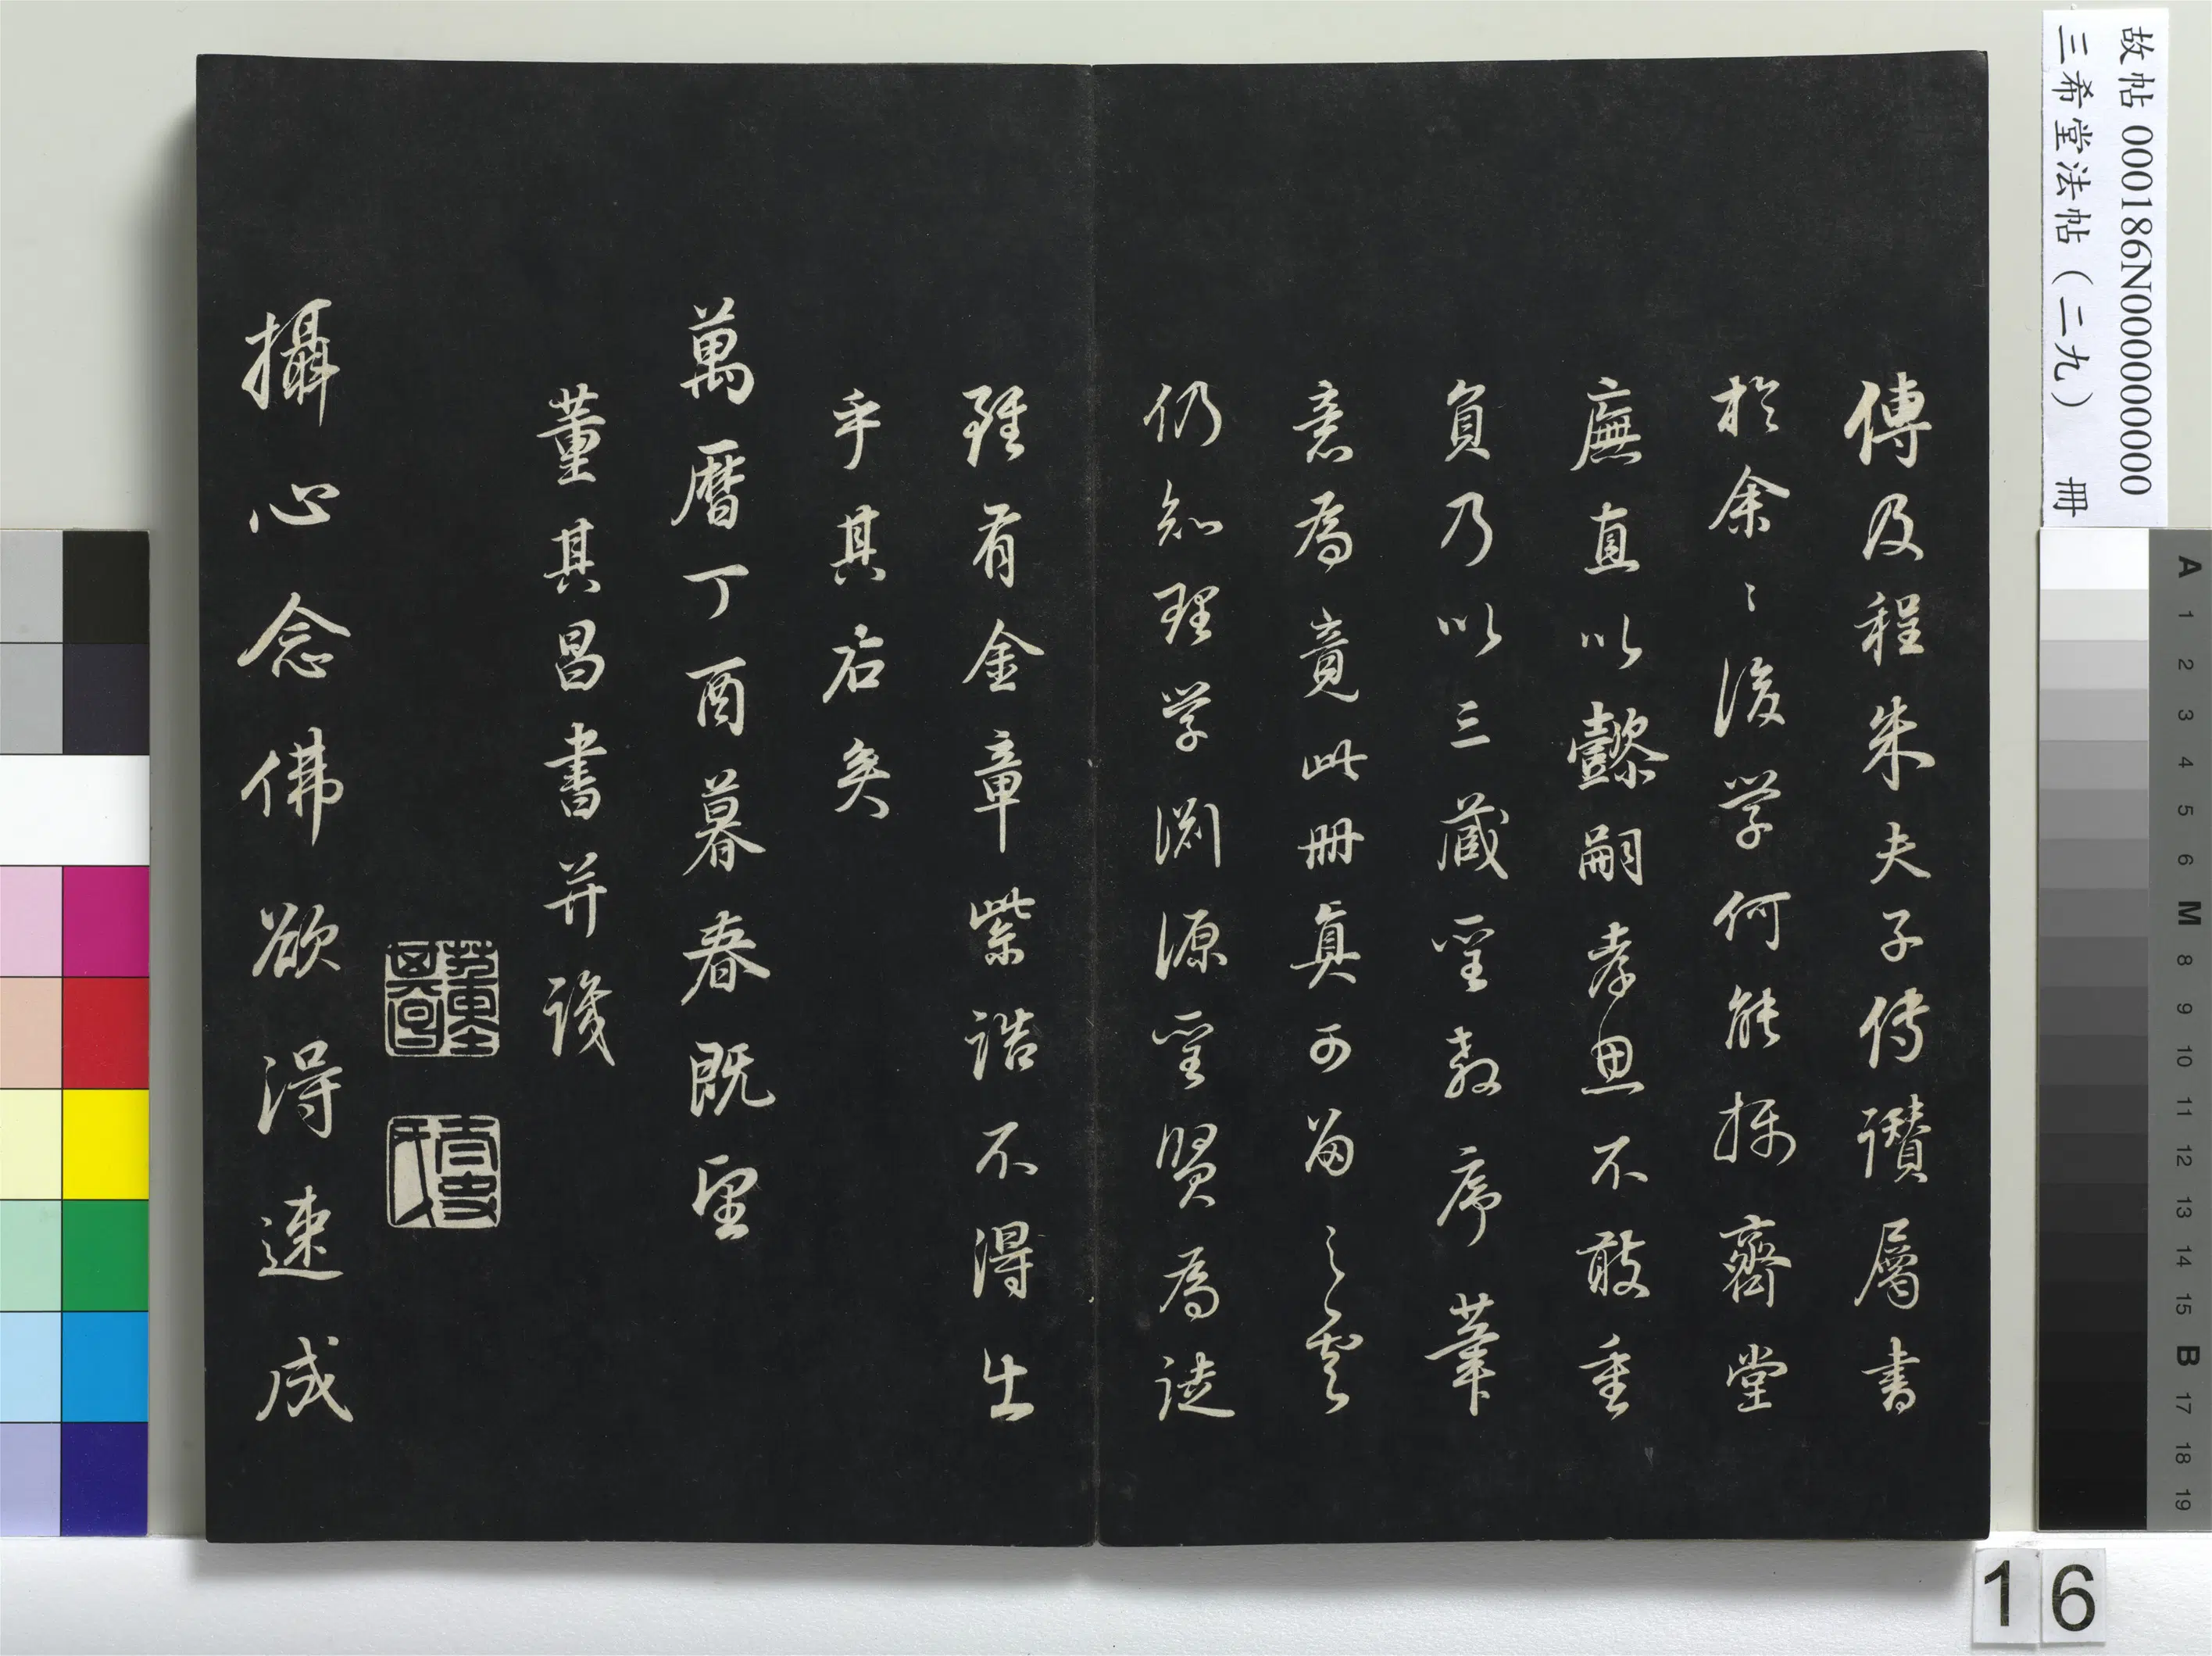 傅及程朱夫子传讚屬書
於余〻後学何能攄齋堂
廡直以懿嗣孝思不敢重
負乃以三藏聖教序筆
意為竟此冊真可留之雲
仍知理学淵源聖賢為徒
雖有金章紫誥不得出
乎其右矣
萬曆丁酉暮春既望
董其昌書并識
太史氏
攝心念佛欲得速成
故帖 000186N000000000
三希堂法帖（二九） 冊
A 1 2 3 4 5 6 M 8 9 10 11 12 13 14 15 B 17 18 19
16